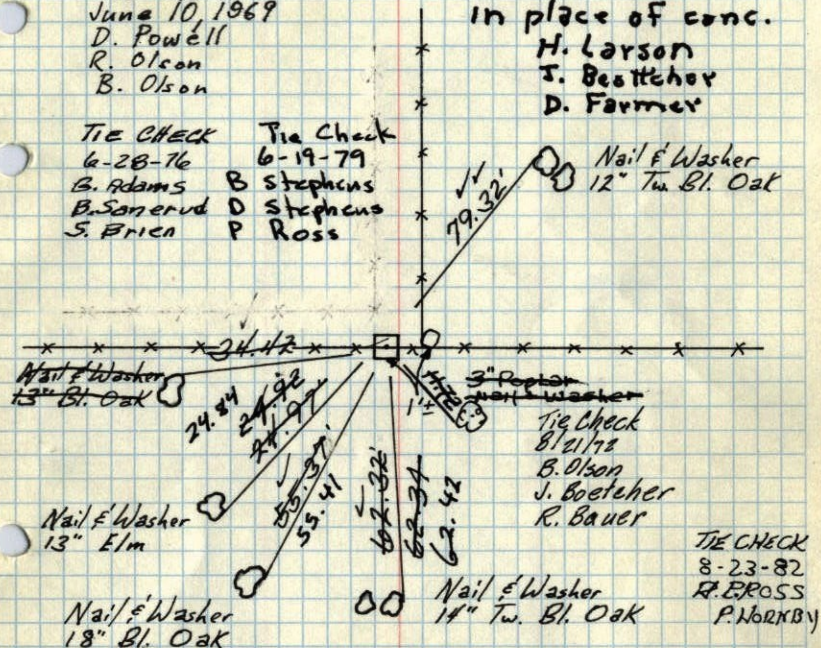 June 10, 1969
D. Powell
R. Olson
B. Olson
in place of conc.
H. Larson
J. Beottcher
D. Farmer
TIE CHECK
6-28-76
B. Adams
B. Sonerud
S. Brien
Tie Check
6-19-79
B Stephens
D Stephens
P Ross
Nail & Washer
12" Tw. Bl. Oak
79.32'
34.42
Nail & Washer
13" Bl. Oak
24.84
24.92
24.97'
1'±
3" Poplar
Nail & Washer
Tie Check
8/21/72
B. Olson
J. Boetcher
R. Bauer
55.37'
55.41
62.32'
62.34
62.42
Nail & Washer
13" Elm
Nail & Washer
18" Bl. Oak
Nail & Washer
14" Tw. Bl. Oak
TIE CHECK
8-23-82
P. ROSS
P. HORNBY